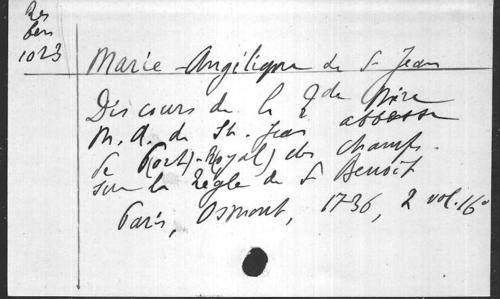 Res
1023
Marie-Angélique de St Jean
Discours de la Rde Mère
M. A. de St. Jean abbesse
de P(ort)-Royal) des Champs
sur la Règle de St Benoît
Paris, Osmont, 1736, 2 vol. 16°